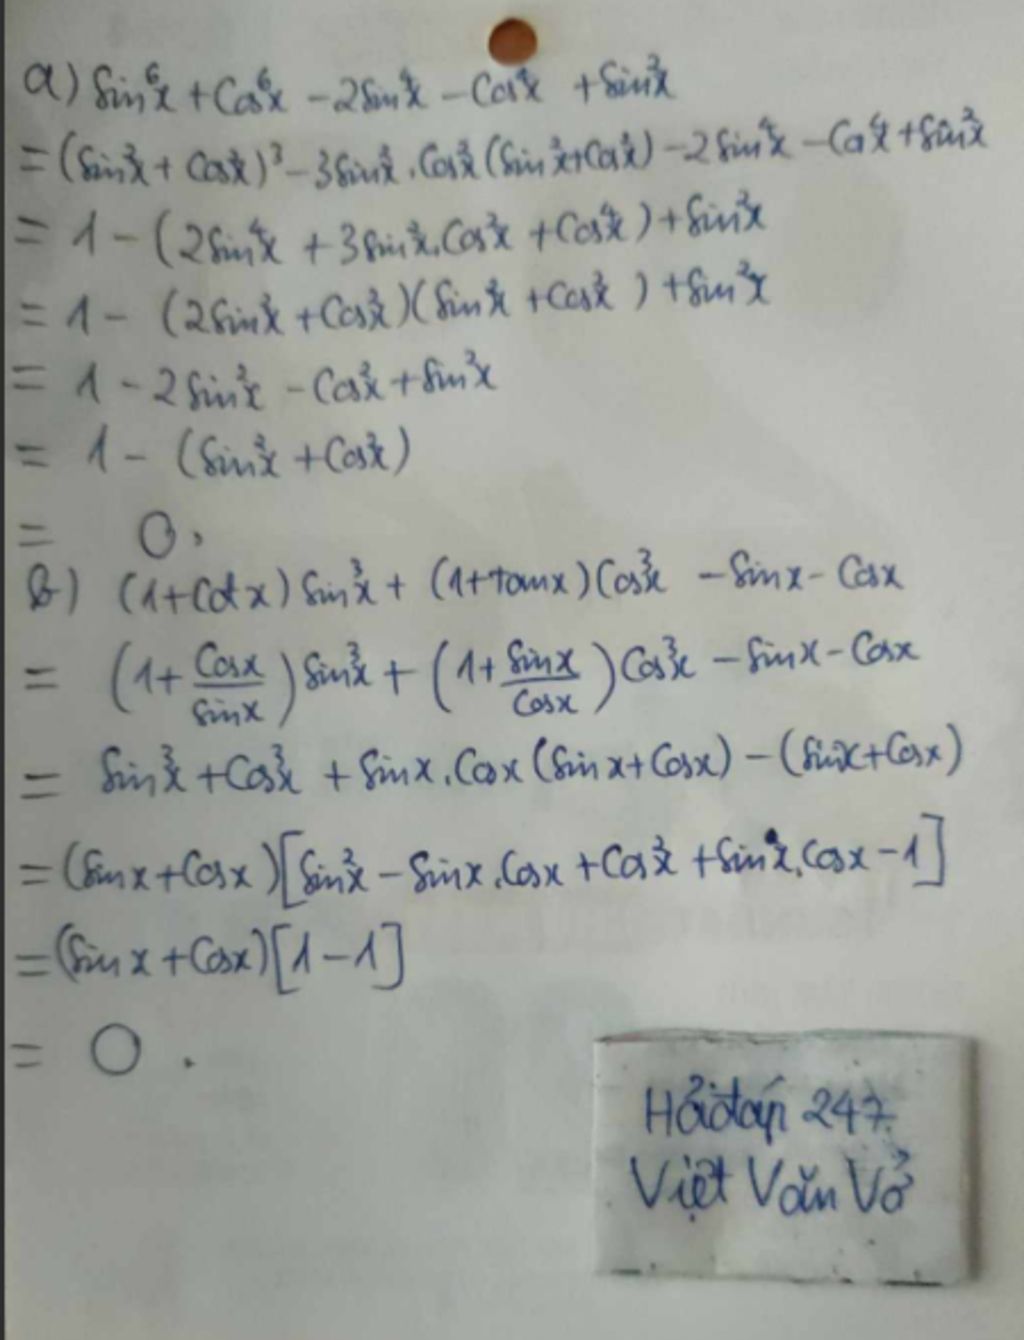 a) Sin⁶x + Cos⁶x - 2Sin⁴x - Cos⁴x + Sin²x
= (Sin²x + Cos²x)³ - 3Sin²x.Cos²x(Sin²x+Cos²x) - 2Sin⁴x - Cos⁴x + Sin²x
= 1 - (2Sin⁴x + 3Sin²x.Cos²x + Cos⁴x) + Sin²x
= 1 - (2Sin²x + Cos²x)(Sin²x + Cos²x) + Sin²x
= 1 - 2Sin²x - Cos²x + Sin²x
= 1 - (Sin²x + Cos²x)
= 0.
b) (1+Cotx)Sin³x + (1+tanx)Cos³x - Sinx - Cosx
= (1+ Cosx/Sinx)Sin³x + (1+ Sinx/Cosx)Cos³x - Sinx - Cosx
= Sin³x + Cos³x + Sinx.Cosx(Sinx+Cosx) - (Sinx+Cosx)
= (Sinx+Cosx)[Sin²x - Sinx.Cosx + Cos²x + Sinx.Cosx - 1]
= (Sinx+Cosx)[1-1]
= 0.
Hỏiđáp 247.
Việt Văn Vở